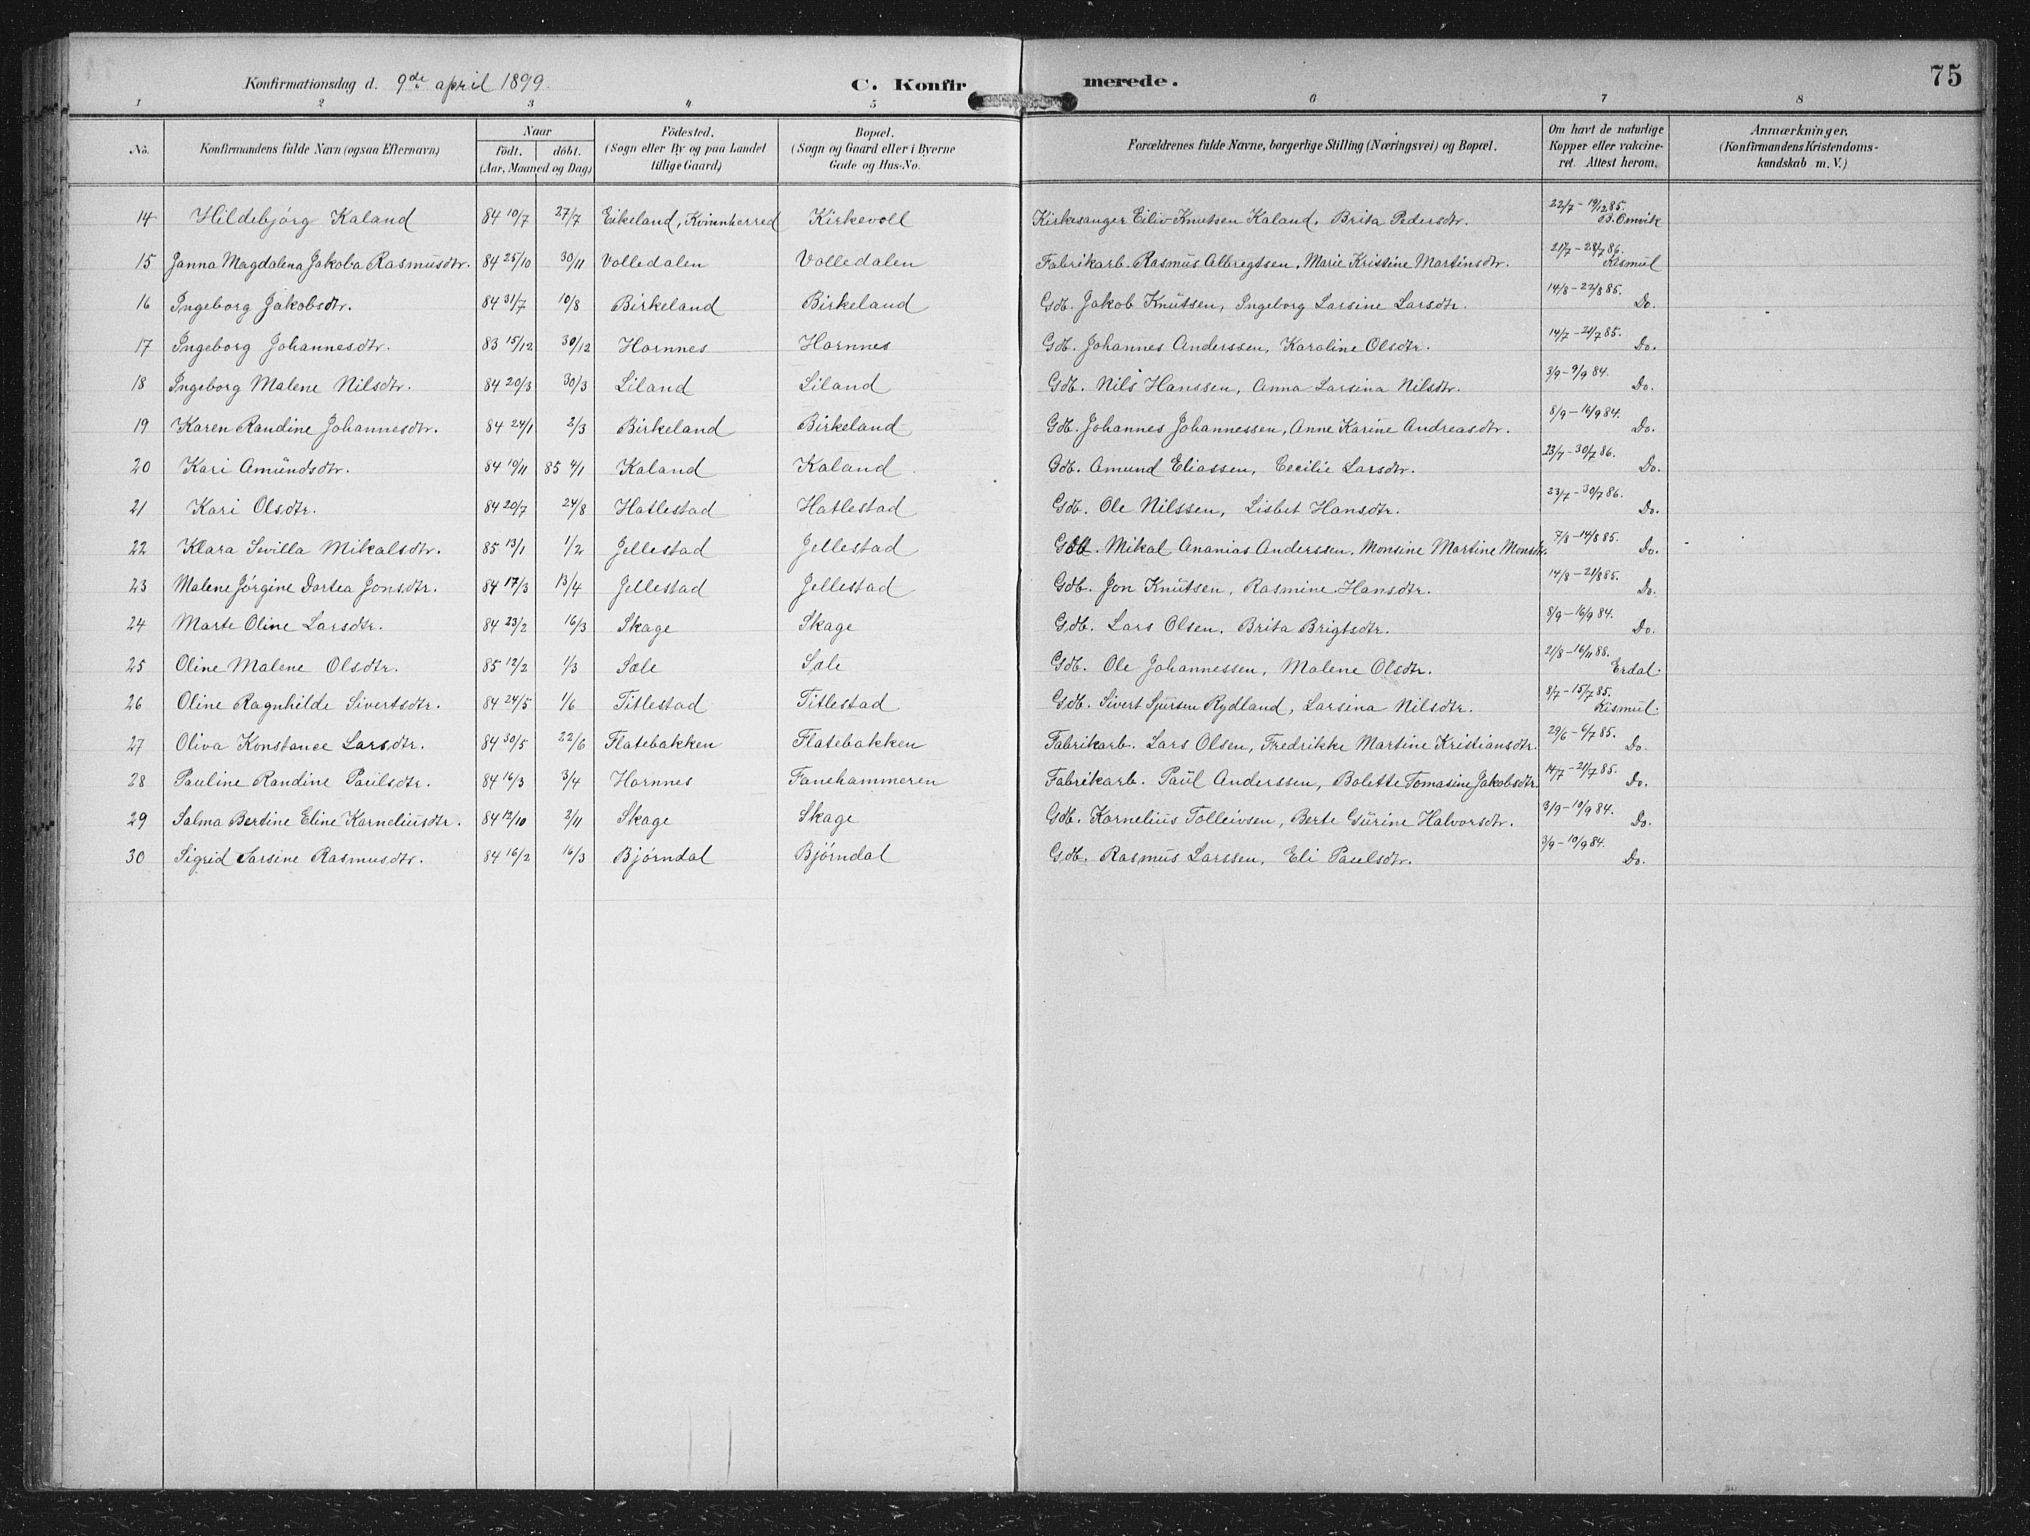 Konfirmationsdag d. 9de april 1899. C. Konfirmerede. 75
1 2 3 4 5 6 7 8
No. Konfirmandens fulde Navn (ogsaa Efternavn) Naar födt. döbt. (Aar, Maaned og Dag) Födested. (Sogn eller By og paa Landet tillige Gaard) Bopæl. (Sogn og Gaard eller i Byerne Gade og Hus-No. Forældrenes fulde Navne, borgerlige Stilling (Næringsvei) og Bopæl. Om havt de naturlige Kopper eller vakcineret. Attest herom. Anmærkninger, (Konfirmandens Kristendomskundskab m. V.)
14 Hildebjörg Kaland 84 10/7 27/7 Eikeland, Kvinnherred Kirkevoll Kirkesanger Eiliv Knutsen Kaland, Brita Pedersdtr. 22/7 - 19/12 85. B. Omvik
15 Janna Magdalena Jakoba Rasmusdtr. 84 25/10 30/11 Volledalen Volledalen Fabrikarb. Rasmus Albregtsen, Marie Kristine Martinsdtr. 21/7 - 28/7 86. Kismul
16 Ingeborg Jakobsdtr. 84 31/7 10/8 Birkeland Birkeland Gdb. Jakob Knutsen, Ingeborg Larsine Larsdtr. 14/8 - 22/8 85. Do.
17 Ingeborg Johannesdtr. 83 15/12 30/12 Hornnes Hornnes Gdb. Johannes Anderssen, Karoline Olsdtr. 14/7 - 21/7 85. Do.
18 Ingeborg Malene Nilsdtr. 84 20/3 30/3 Liland Liland Gdb. Nils Hanssen, Anna Larsina Nilsdtr. 3/9 - 9/9 84. Do.
19 Karen Randine Johannesdtr. 84 24/1 2/3 Birkeland Birkeland Gdb. Johannes Johannessen, Anne Karine Andreasdtr. 8/9 - 16/9 84. Do.
20 Kari Amundsdtr. 84 10/11 85 4/1 Kaland Kaland Gdb. Amund Eliassen, Cecilie Larsdtr. 23/7 - 30/7 86. Do.
21 Kari Olsdtr. 84 20/7 24/8 Hatlestad Hatlestad Gdb. Ole Nilssen, Lisbet Hansdtr. 23/7 - 30/7 86. Do.
22 Klara Sevilla Mikalsdtr. 85 13/1 1/2 Jellestad Jellestad Gdb. Mikal Ananias Anderssen, Monsine Martine Monsdtr. 7/8 - 14/8 85. Do.
23 Malene Jörgine Dortea Jonsdtr. 84 17/3 13/4 Jellestad Jellestad Gdb. Jon Knutsen, Rasmine Hansdtr. 14/8 - 21/8 85. Do.
24 Marte Oline Larsdtr. 84 23/2 16/3 Skage Skage Gdb. Lars Olsen, Brita Brigtsdtr. 8/9 - 16/9 84. Do.
25 Oline Malene Olsdtr. 85 12/2 1/3 Sæle Sæle Gdb. Ole Johannessen, Malene Olsdtr. 21/8 - 16/11 88. Erdal.
26 Oline Ragnhilde Sivertsdtr. 84 24/5 1/6 Titlestad Titlestad Gdb. Sivert Sjursen Rydland, Larsina Nilsdtr. 8/7 - 15/7 85. Kismul.
27 Oliva Konstance Larsdtr. 84 30/5 22/6 Flatebakken Flatebakken Fabrikarb. Lars Olsen, Fredrikke Martine Kristiansdtr. 29/6 - 6/7 85. Do.
28 Pauline Randine Paulsdtr. 84 16/3 3/4 Hornnes Fanehammeren Fabrikarb. Paul Anderssen, Bolette Tomasine Jakobsdtr. 14/7 - 21/7 85. Do.
29 Salma Bertine Eline Korneliusdtr. 84 12/10 2/11 Skage Skage Gdb. Kornelius Tolleivsen, Berte Gurine Halvorsdtr. 3/9 - 10/9 84. Do.
30 Sigrid Larsine Rasmusdtr. 84 16/2 16/3 Bjørndal Bjørndal Gdb. Rasmus Larssen, Eli Paulsdtr. 3/9 - 10/9 84. Do.